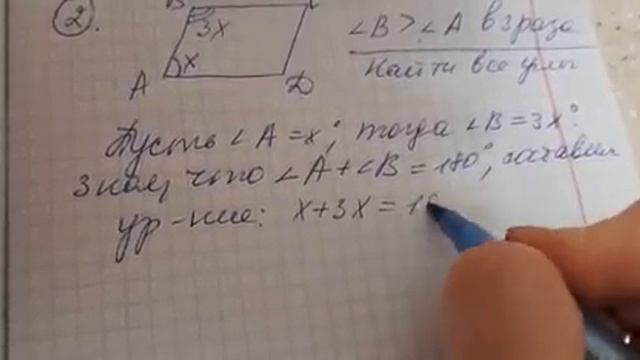 2.
B
3x
x
A
D
∠B > ∠A в 3 раза
Найти все углы
Пусть ∠A = x°, тогда ∠B = 3x°.
зная, что ∠A + ∠B = 180°, составим
ур-ние: x + 3x = 18